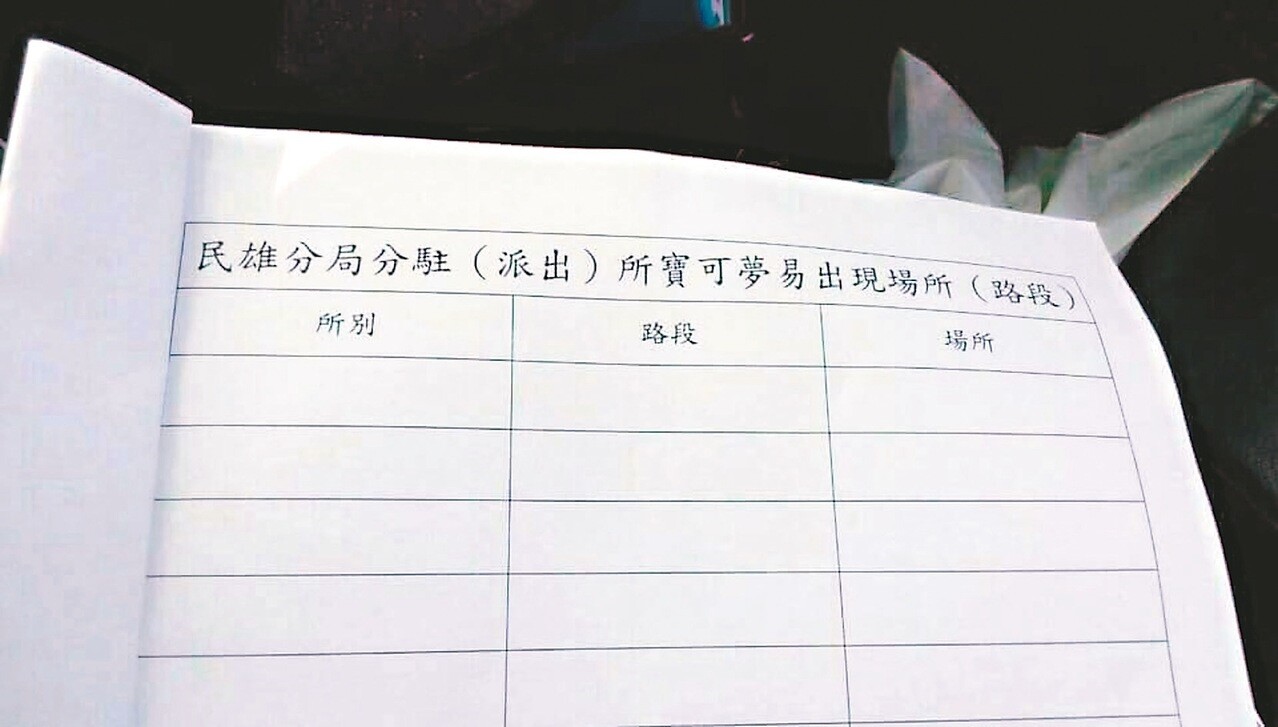 民雄分局分駐（派出）所寶可夢易出現場所（路段）
所別 路段 場所